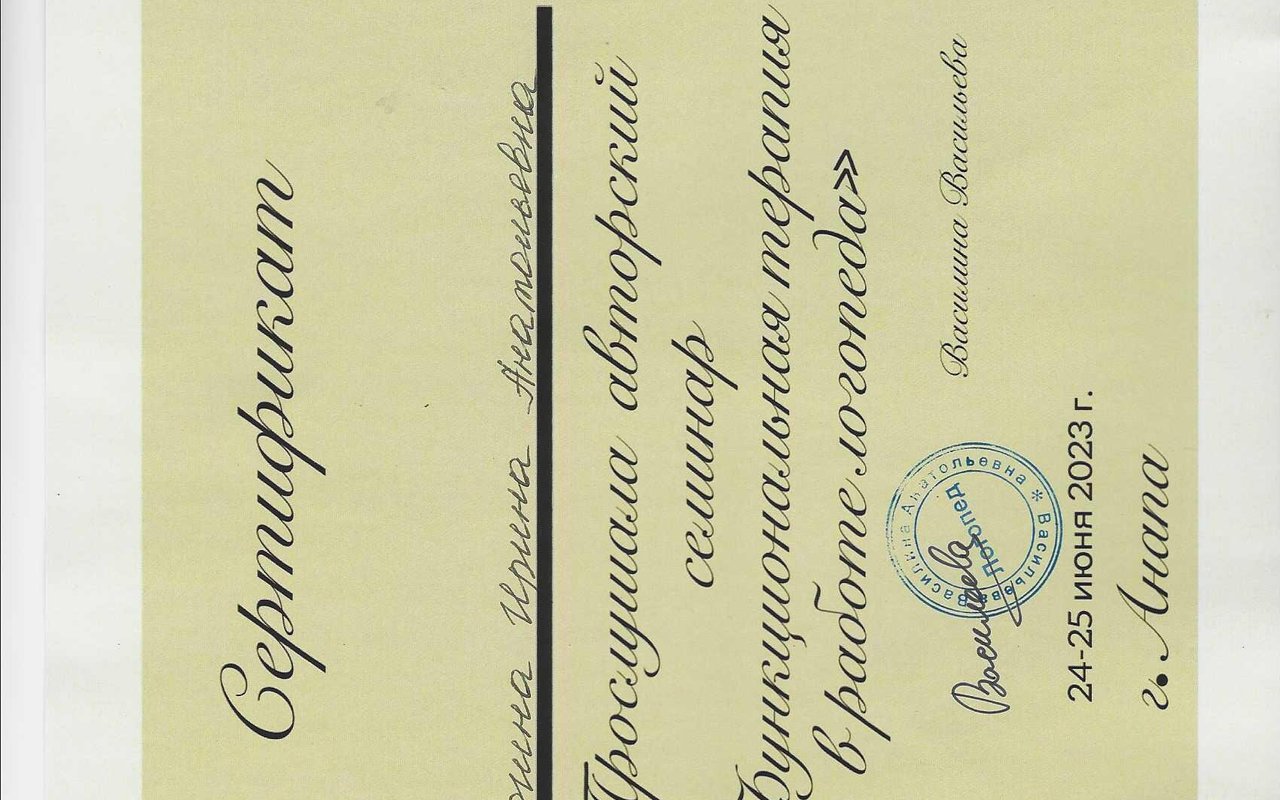 Сертификат
Ирина Анатольевна
Прослушала авторский
семинар
Функциональная терапия
в работе логопеда»
Василина Васильева
Василина Анатольевна * Васильева
Логопед
Васильева
24-25 июня 2023 г.
г. Анапа